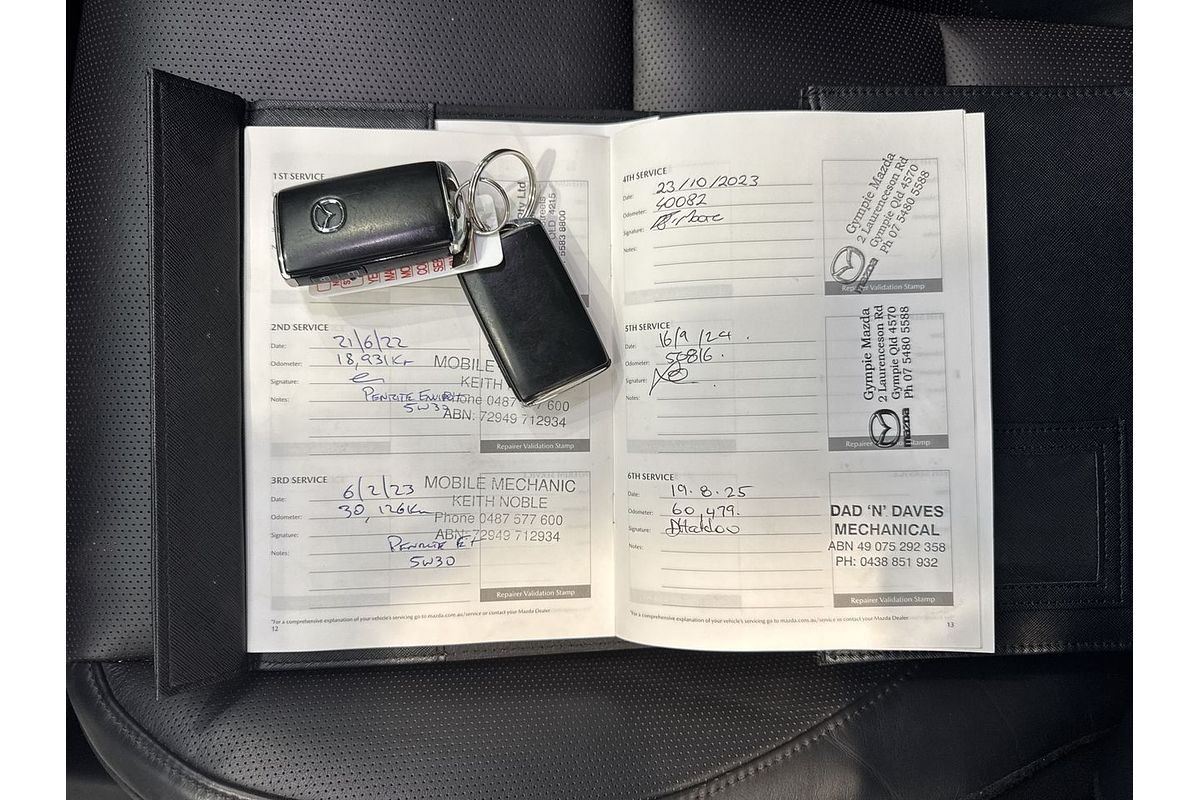 1ST SERVICE
5583 8800
2ND SERVICE
Date: 21/6/22
Odometer: 18,931Km
Signature:
Notes: PENRITE ENVIRO
5W30
MOBILE
KEITH
Phone 0487 577 600
ABN: 72949 712934
Repairer Validation Stamp
3RD SERVICE
Date: 6/2/23
Odometer: 30,126Km
Signature:
Notes: PENRITE
5W30
MOBILE MECHANIC
KEITH NOBLE
Phone 0487 577 600
ABN: 72949 712934
Repairer Validation Stamp
*For a comprehensive explanation of your vehicle's servicing go to mazda.com.au/service or contact your Mazda Dealer
12
4TH SERVICE
Date: 23/10/2023
Odometer: 40082
Signature:
Notes:
Gympie Mazda
2 Laurenceson Rd
Gympie Qld 4570
Ph 07 5480 5588
mazda
Repairer Validation Stamp
5TH SERVICE
Date: 16/9/24.
Odometer: 50816.
Signature:
Notes:
Gympie Mazda
2 Laurenceson Rd
Gympie Qld 4570
Ph 07 5480 5588
mazda
Repairer Validation Stamp
6TH SERVICE
Date: 19.8.25
Odometer: 60,479.
Signature:
Notes:
DAD 'N' DAVES
MECHANICAL
ABN 49 075 292 358
PH: 0438 851 932
Repairer Validation Stamp
*For a comprehensive explanation of your vehicle's servicing go to mazda.com.au/service or contact your Mazda Dealer
13